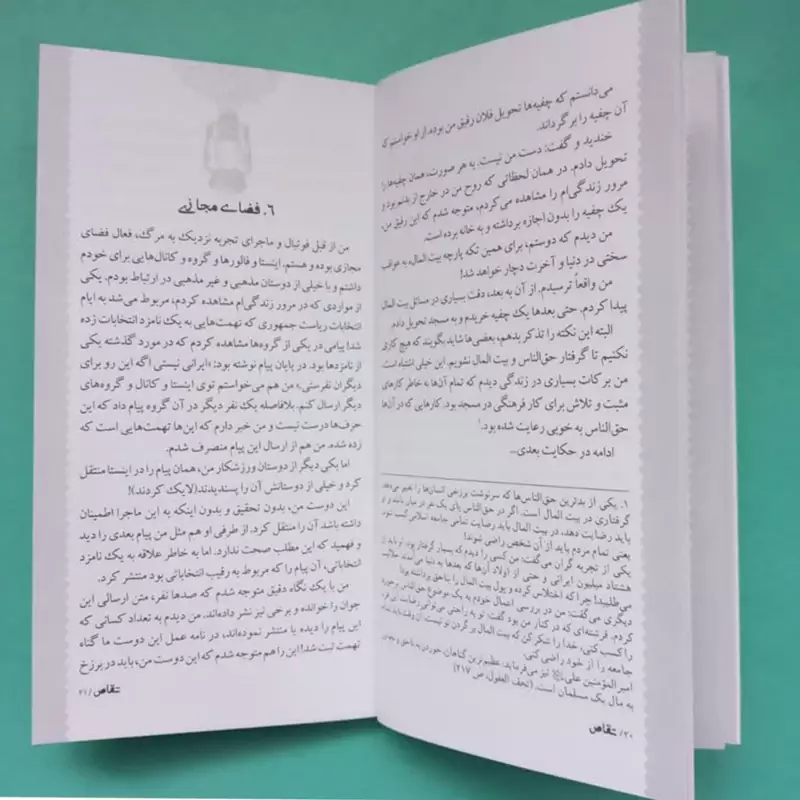 می‌دانستم که چفیه‌ها تحویل فلان رفیق من بوده. از او خواستم که
آن چفیه را برگرداند.
خندید و گفت: دست من نیست. به هر صورت، همان چفیه‌ها را
تحویل دادم. در همان لحظاتی که روح من در خارج از بدنم بود و
مرور زندگی‌ام را مشاهده می‌کردم، متوجه شدم که این رفیق من،
یک چفیه را بدون اجازه برداشته و به خانه برده است.
من دیدم که دوستم، برای همین تکه پارچه بیت المال، به عواقب
سختی در دنیا و آخرت دچار خواهد شد!
من واقعاً ترسیدم. از آن به بعد، دقت بسیاری در مسائل بیت المال
پیدا کردم. حتی بعدها یک چفیه خریدم و به مسجد تحویل دادم.
البته این نکته را تذکر بدهم، بعضی‌ها شاید بگویند که هیچ کاری
نکنیم تا گرفتار حق‌الناس و بیت المال نشویم. این خیلی اشتباه است.
من برکات بسیاری در زندگی دیدم که تمام آن‌ها به خاطر کارهای
مثبت و تلاش برای کار فرهنگی در مسجد بود. کارهایی که در آن‌ها
حق‌الناس به خوبی رعایت شده بود.¹
ادامه در حکایت بعدی...
۱. یکی از بدترین حق‌الناس‌ها که سرنوشت برزخی انسان‌ها را تغییر می‌دهد
گرفتاری در بیت المال است. اگر در حق‌الناس پای یک نفر در میان باشد و او
باید رضایت دهد، در بیت المال باید رضایت تمامی جامعه اسلامی کسب شود.
یعنی تمام مردم باید از آن شخص راضی شوند!
یکی از تجربه گران می‌گفت: من کسی را دیدم که بسیار گرفتار بود. او باید از
هشتاد میلیون ایرانی و حتی از اولاد آن‌ها که بعدها به دنیا می‌آمدند، حلالیت
می‌طلبید! چرا که اختلاس کرده و پول بیت المال را بناحق برداشته بود!
دیگری می‌گفت: من در بررسی اعمال خودم به یک موضوع حق‌الناس برخورد
کردم. فرشته‌ای که در کنار من بود گفت: تو به راحتی می‌توانی رضایت این فرد
را کسب کنی، خدا را شکر کن که بیت المال بر گردن تو نیست، آن وقت باید تمام
جامعه را از خود راضی کنی.
امیرالمؤمنین علی علیه‌السلام نیز می‌فرماید: عظیم ترین گناهان، خوردن به ناحق و
به مال یک مسلمان است. (تحف العقول، ص ۲۱۷)
۲۰/ تقاص
۶. فضای مجازی
من از قبل فوتبال و ماجرای تجربه نزدیک به مرگ، فعال فضای
مجازی بوده و هستم. اینستا و فالورها و گروه و کانال‌هایی برای خودم
داشتم و با خیلی از دوستان مذهبی و غیر مذهبی در ارتباط بودم. یکی
از مواردی که در مرور زندگی‌ام مشاهده کردم، مربوط می‌شد به ایام
انتخابات ریاست جمهوری که تهمت‌هایی به یک نامزد انتخابات زده
شد! پیامی در یکی از گروه‌ها مشاهده کردم که در مورد گذشته یکی
از نامزدها بود. در پایان پیام نوشته بود: «ایرانی نیستی اگه این رو برای
دیگران نفرستی» من هم می‌خواستم توی اینستا و کانال و گروه‌های
دیگر ارسال کنم. بلافاصله یک نفر دیگر در آن گروه پیام داد که این
حرف‌ها درست نیست و من خبر دارم که این‌ها تهمت‌هایی است که
زده شده. من هم از ارسال این پیام منصرف شدم.
اما یکی دیگر از دوستان ورزشکار من، همان پیام را در اینستا منتقل
کرد و خیلی از دوستانش آن را پسندیدند(لایک کردند)!
این دوست من، بدون تحقیق و بدون اینکه به این ماجرا اطمینان
داشته باشد آن را منتقل کرد. از طرفی او هم مثل من پیام بعدی را دید
و فهمید که این مطلب صحت ندارد. اما به خاطر علاقه به یک نامزد
انتخاباتی، آن پیام را که مربوط به رقیب انتخاباتی بود منتشر کرد.
من با یک نگاه دقیق متوجه شدم که صدها نفر، متن ارسالی این
جوان را خوانده و برخی نیز نشر داده‌اند. من دیدم به تعداد کسانی که
این پیام را دیده یا منتشر نموده‌اند، در نامه عمل این دوست ما گناه
تهمت ثبت شد! این را هم متوجه شدم که این دوست من، باید در برزخ
تقاص / ۲۱